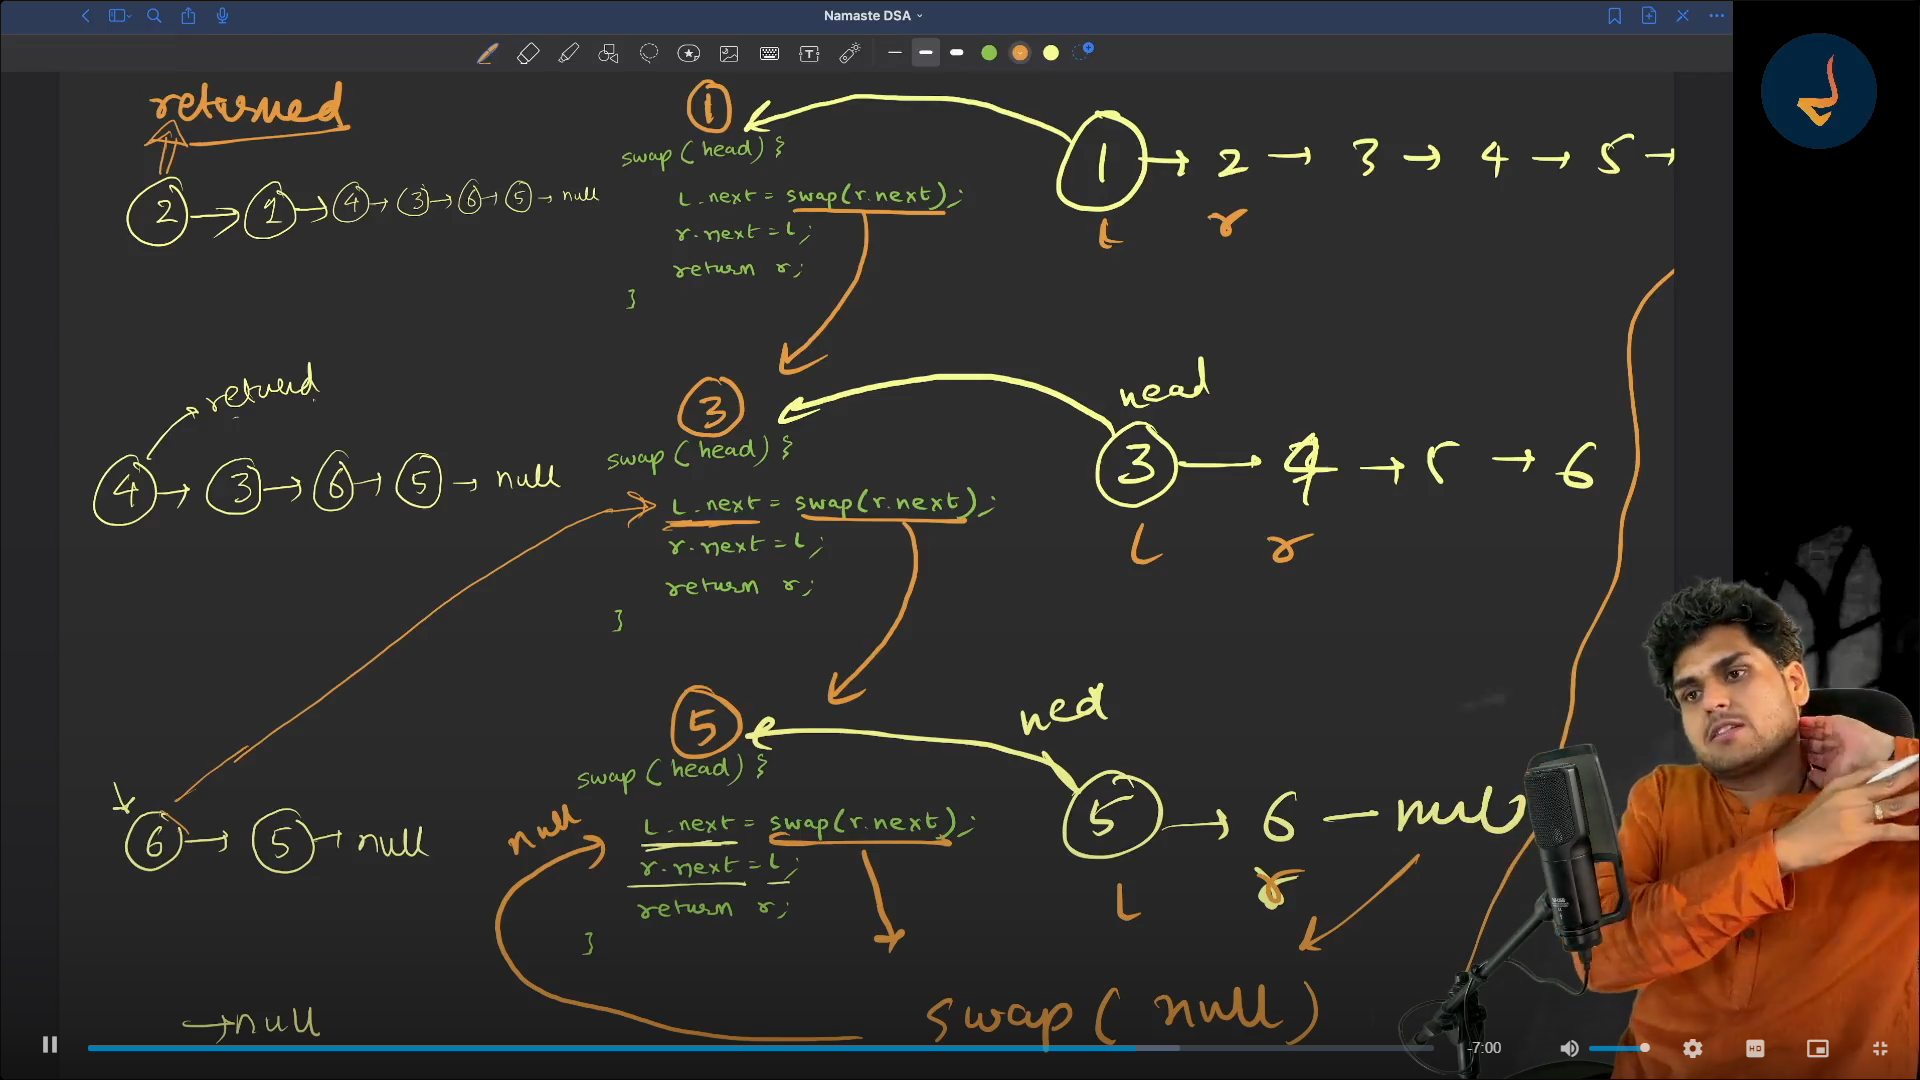 Namaste DSA
returned
2 → 1 → 4 → 3 → 6 → 5 → null
1
swap (head) {
L.next = swap(r.next);
r.next = L;
return r;
}
1 → 2 → 3 → 4 → 5 →
L r
returd
4 → 3 → 6 → 5 → null
3
swap (head) {
L.next = swap(r.next);
r.next = L;
return r;
}
head
3 → 4 → 5 → 6
L r
6 → 5 → null
5
swap (head) {
null
L.next = swap(r.next);
r.next = L;
return r;
}
5 → 6 — null
L r
→ null
swap ( null )
-7:00
HD